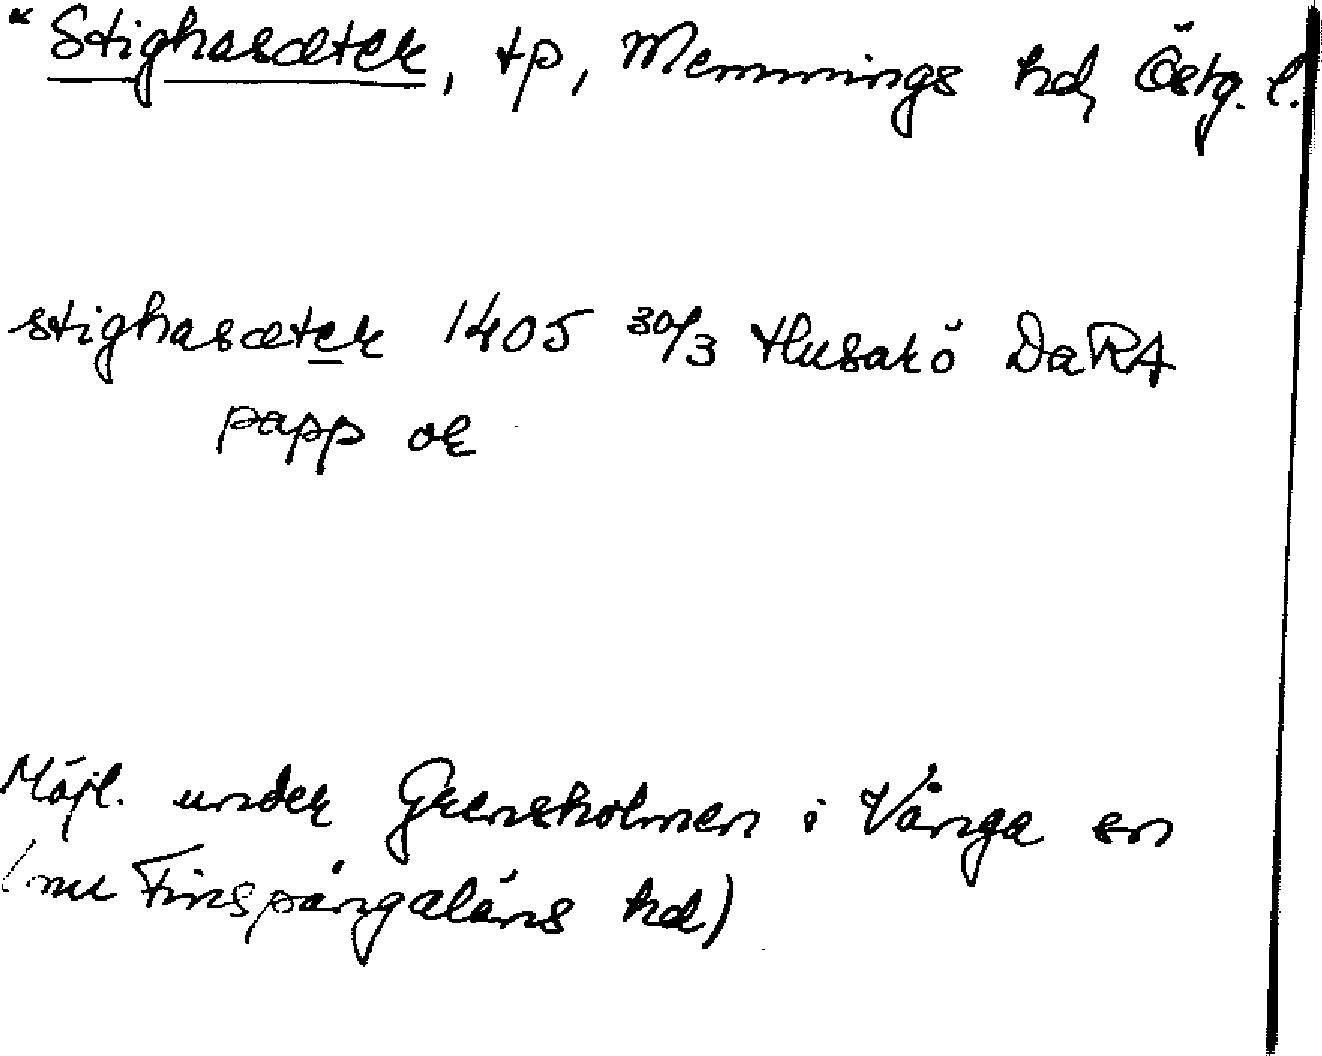 *Stighasæter, tp, Memmings hd, Östg. l.
stighasæter 1405 30/3 Husarö DaRA
papp or
Möjl. under Grensholmen i Vånga sn
(nu Finspångaläns hd)